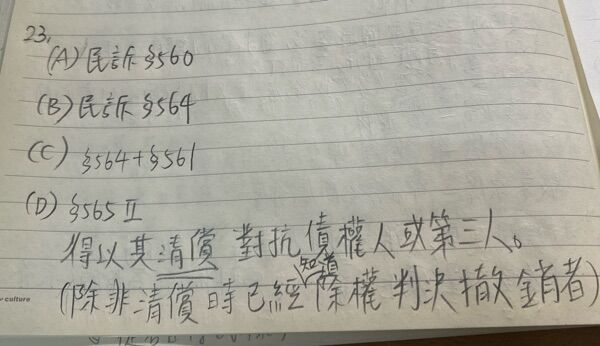 23.
(A) 民訴 §560
(B) 民訴 §564
(C) §564+§561
(D) §565 II
得以其清償 對抗債權人或第三人。
知道
(除非清償時已經除權判決撤銷者)
culture